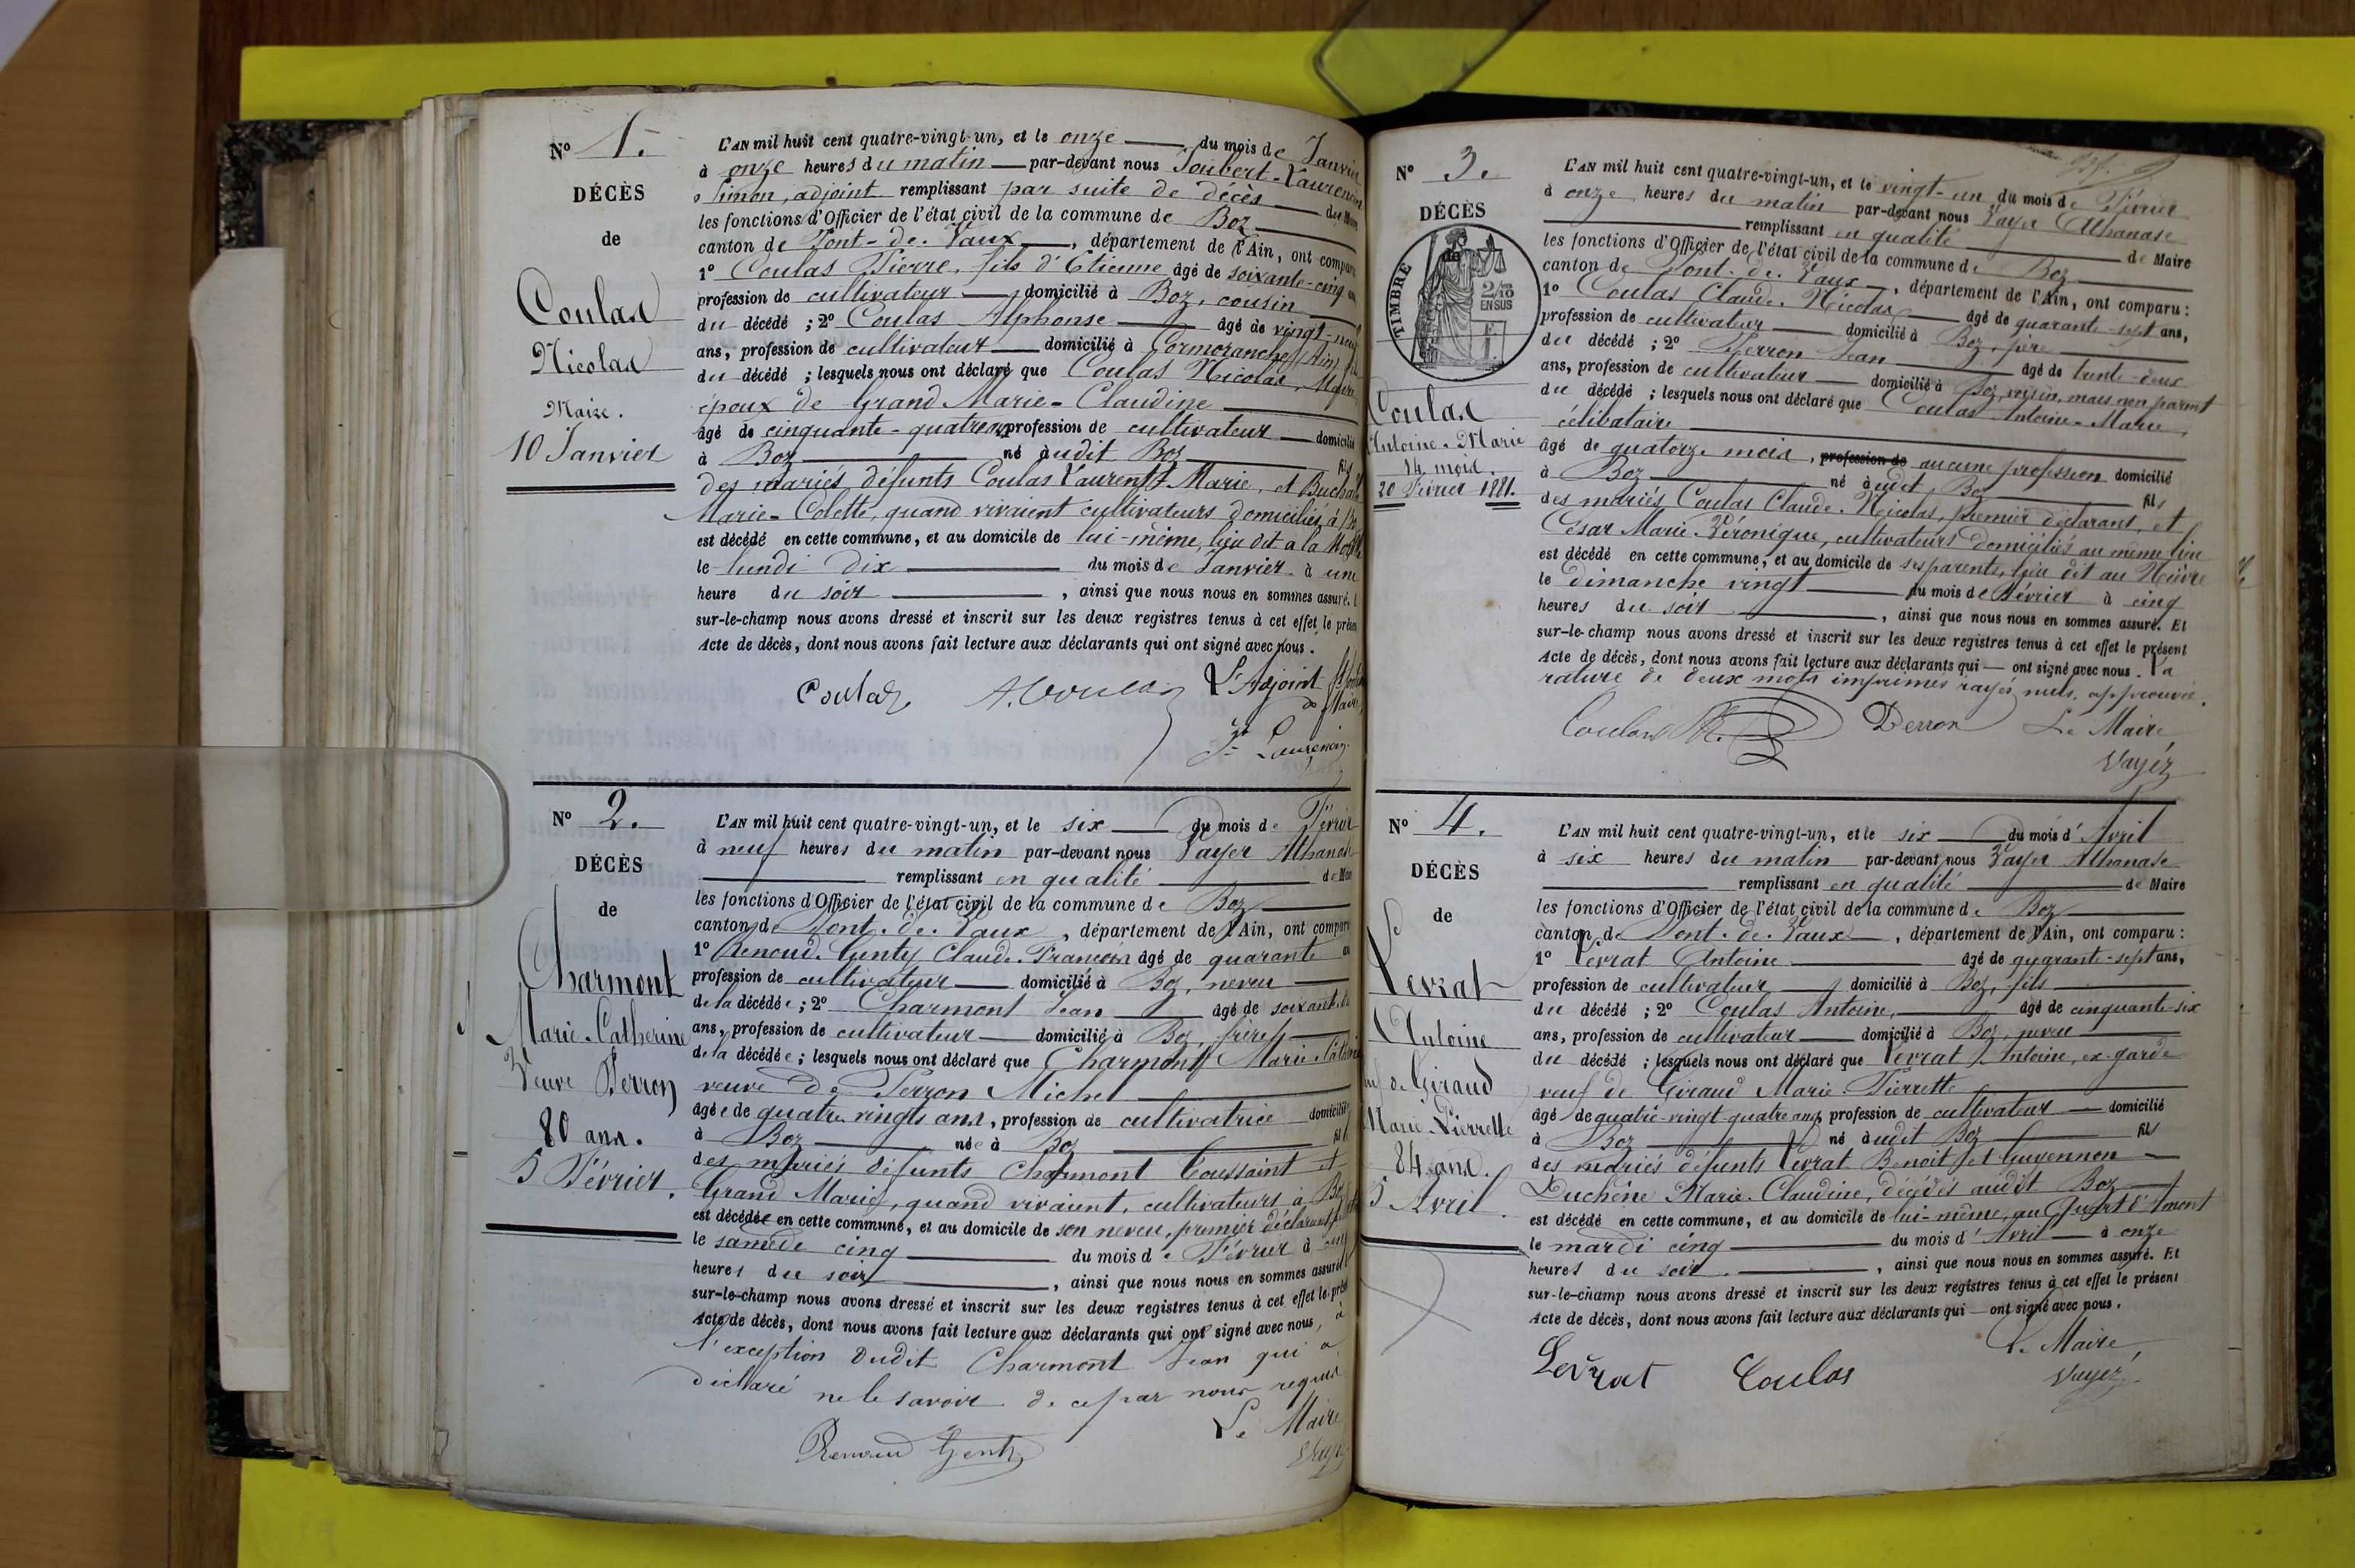 Nº 1.
DÉCÈS
de
Coulas
Nicolas
Maire.
10 Janvier
L'AN mil huit cent quatre-vingt-un, et le onze du mois de Janvier
à onze heures du matin par-devant nous Joubert-Laurencin
Simon, adjoint remplissant par suite de décès du Maire
les fonctions d'Officier de l'état civil de la commune de Boz
canton de Pont-de-Vaux, département de l'Ain, ont comparu
1º Coulas Pierre, fils d'Etienne âgé de soixante-cinq ans
profession de cultivateur domicilié à Boz, cousin
du décédé ; 2º Coulas Alphonse âgé de vingt-neuf
ans, profession de cultivateur domicilié à Cormoranche (Ain)
du décédé ; lesquels nous ont déclaré que Coulas Nicolas, Maire
époux de Grand Marie-Claudine
âgé de cinquante-quatre ans profession de cultivateur domicilié
à Boz né audit Boz fils
des mariés défunts Coulas Laurent Marie, et
Marie-Colette, quand vivaient cultivateurs domiciliés à Boz
est décédé en cette commune, et au domicile de lui-même, lieu dit à la
le lundi dix du mois de Janvier à une
heure du soir, ainsi que nous nous en sommes assuré. Et
sur-le-champ nous avons dressé et inscrit sur les deux registres tenus à cet effet le présent
Acte de décès, dont nous avons fait lecture aux déclarants qui ont signé avec nous.
Coulas A. Coulas L'Adjoint
de Maire,
Jt Laurencin
Nº 2.
DÉCÈS
de
Charmont
Marie-Catherine
Veuve Perron
80 ans.
5 Février.
L'AN mil huit cent quatre-vingt-un, et le six du mois de Février
à neuf heures du matin par-devant nous Vayer Athanase
remplissant en qualité de Maire
les fonctions d'Officier de l'état civil de la commune de Boz
canton de Pont-de-Vaux, département de l'Ain, ont comparu
1º Renoud-Genty Claude-François âgé de quarante ans
profession de cultivateur domicilié à Boz, neveu
de la décédée ; 2º Charmont Jean âgé de soixante
ans, profession de cultivateur domicilié à Boz, frère
de la décédée ; lesquels nous ont déclaré que Charmont Marie-Catherine
veuve de Perron Michel
âgée de quatre-vingts ans, profession de cultivatrice domiciliée
à Boz née à Boz fille
des mariés défunts Charmont Toussaint et
Grand Marie, quand vivaient, cultivateurs à Boz
est décédée en cette commune, et au domicile de son neveu, premier déclarant
le samedi cinq du mois de Février à cinq
heures du soir, ainsi que nous nous en sommes assuré
sur-le-champ nous avons dressé et inscrit sur les deux registres tenus à cet effet le présent
Acte de décès, dont nous avons fait lecture aux déclarants qui ont signé avec nous, à
l'exception dudit Charmont Jean qui a
déclaré ne le savoir de ce par nous requis
Le Maire
Renoud Genty Vayer
Nº 3.
DÉCÈS
de
TIMBRE
2/10
EN SUS
Coulas
Antoine-Marie
14 mois.
20 Février 1881.
L'AN mil huit cent quatre-vingt-un, et le vingt-un du mois de Février
à onze heures du matin par-devant nous Vayer Athanase
remplissant en qualité de Maire
les fonctions d'Officier de l'état civil de la commune de Boz
canton de Pont-de-Vaux, département de l'Ain, ont comparu :
1º Coulas Claude-Nicolas âgé de quarante-sept ans,
profession de cultivateur domicilié à Boz, père
du décédé ; 2º Perron Jean âgé de trente-deux
ans, profession de cultivateur domicilié à Boz, voisin, mais non parent
du décédé ; lesquels nous ont déclaré que Coulas Antoine-Marie,
célibataire
âgé de quatorze mois, profession de aucune profession domicilié
à Boz né audit Boz fils
des mariés Coulas Claude-Nicolas, premier déclarant, et
César Marie-Véronique, cultivateurs domiciliés au même lieu
est décédé en cette commune, et au domicile de ses parents, lieu dit au
le dimanche vingt du mois de Février à cinq
heures du soir, ainsi que nous nous en sommes assuré. Et
sur-le-champ nous avons dressé et inscrit sur les deux registres tenus à cet effet le présent
Acte de décès, dont nous avons fait lecture aux déclarants qui ont signé avec nous. La
rature de deux mots imprimés rayés nuls, approuvée.
Coulas Perron Le Maire,
Vayer
Nº 4.
DÉCÈS
de
Levrat
Antoine
veuf de Giraud
Marie-Pierrette
84 ans.
5 Avril.
L'AN mil huit cent quatre-vingt-un, et le six du mois d'Avril
à six heures du matin par-devant nous Vayer Athanase
remplissant en qualité de Maire
les fonctions d'Officier de l'état civil de la commune de Boz
canton de Pont-de-Vaux, département de l'Ain, ont comparu :
1º Levrat Antoine âgé de quarante-sept ans,
profession de cultivateur domicilié à Boz, fils
du décédé ; 2º Coulas Antoine, âgé de cinquante-six
ans, profession de cultivateur domicilié à Boz, neveu
du décédé ; lesquels nous ont déclaré que Levrat Antoine, ex-garde
veuf de Giraud Marie-Pierrette
âgé de quatre-vingt-quatre ans, profession de cultivateur domicilié
à Boz né audit Boz fils
des mariés défunts Levrat Benoit et Guyennon
Duchêne Marie-Claudine, décédés audit Boz
est décédé en cette commune, et au domicile de lui-même, au
le mardi cinq du mois d'Avril à onze
heures du soir, ainsi que nous nous en sommes assuré. Et
sur-le-champ nous avons dressé et inscrit sur les deux registres tenus à cet effet le présent
Acte de décès, dont nous avons fait lecture aux déclarants qui ont signé avec nous.
Le Maire,
Levrat Coulas Vayer